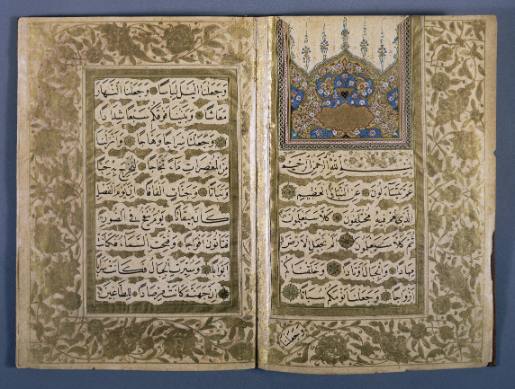 بسم الله الرحمن الرحيم
عم يتساءلون عن النبإ العظيم
الذي هم فيه مختلفون كلا سيعلمون
ثم كلا سيعلمون الم نجعل الارض
مهادا والجبال اوتادا وخلقناكم
ازواجا وجعلنا نومكم سباتا
وجعلنا
وجعلنا الليل لباسا وجعلنا النهار
معاشا وبنينا فوقكم سبعا شدادا
وجعلنا سراجا وهاجا وانزلنا
من المعصرات ماء ثجاجا لنخرج به حبا
ونباتا وجنات الفافا ان يوم الفصل
كان ميقاتا يوم ينفخ في الصور
فتاتون افواجا وفتحت السماء فكانت
ابوابا وسيرت الجبال فكانت سرابا
ان جهنم كانت مرصادا للطاغين